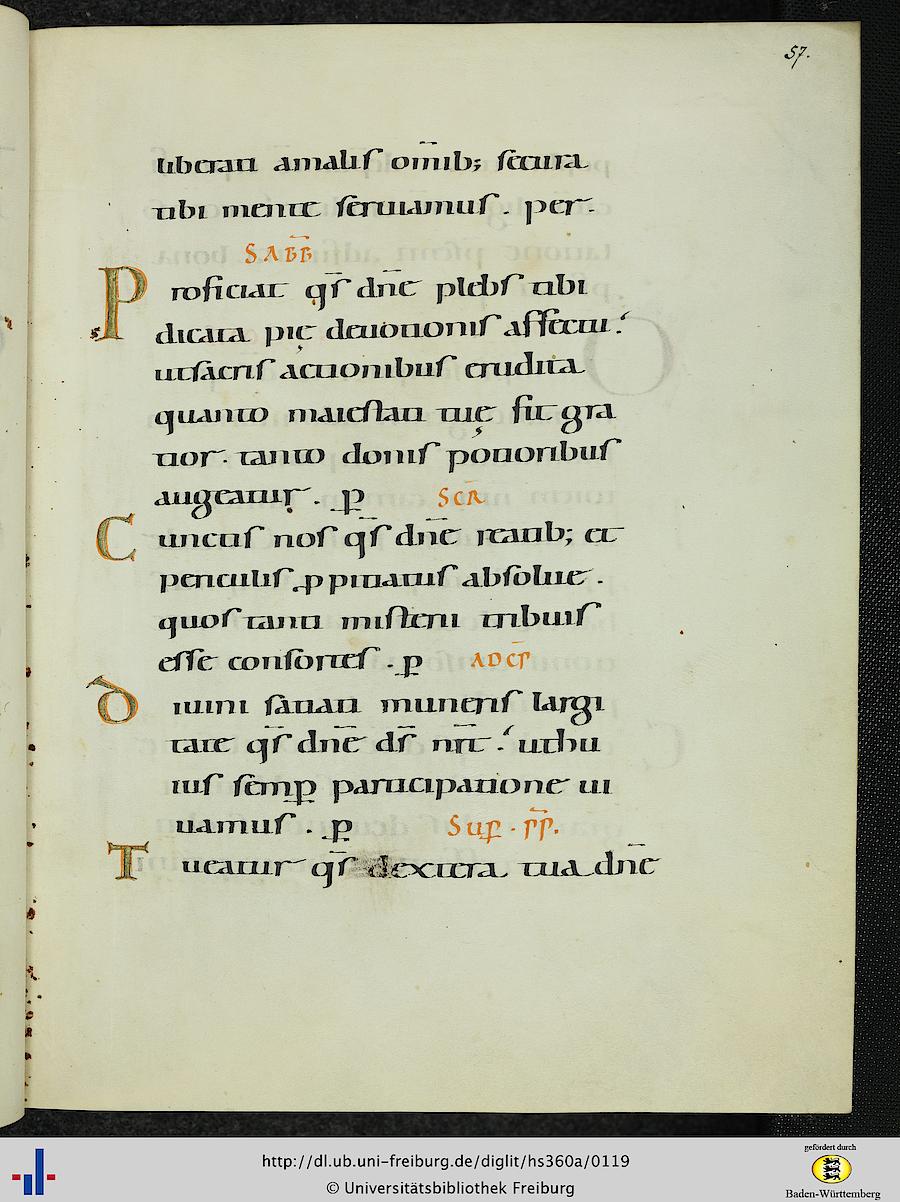 57.
liberati amalis om̅ib; secura
tibi mente seruiamus . per .
SABB̅
Proficiat q̅s dn̅e plebs tibi
dicata pię deuotionis affectu :
utsacris actionibus erudita
quanto maiestati tuę sit gra
tior . tanto donis potioribus
augeatur . ꝑ SCR̅
Cunctis nos q̅s dn̅e reatib; et
periculis ꝓpitiatus absolue .
quos tanti misterii tribuis
esse consortes . ꝑ AD CP̅
Diuini satiati muneris largi
tate q̅s dn̅e ds̅ nr̅ : uthu
ius semꝑ participatione ui
uamus . ꝑ Suꝑ . pp̅ .
Tueatur q̅s dextera tua dn̅e
http://dl.ub.uni-freiburg.de/diglit/hs360a/0119
© Universitätsbibliothek Freiburg
gefördert durch
Baden-Württemberg